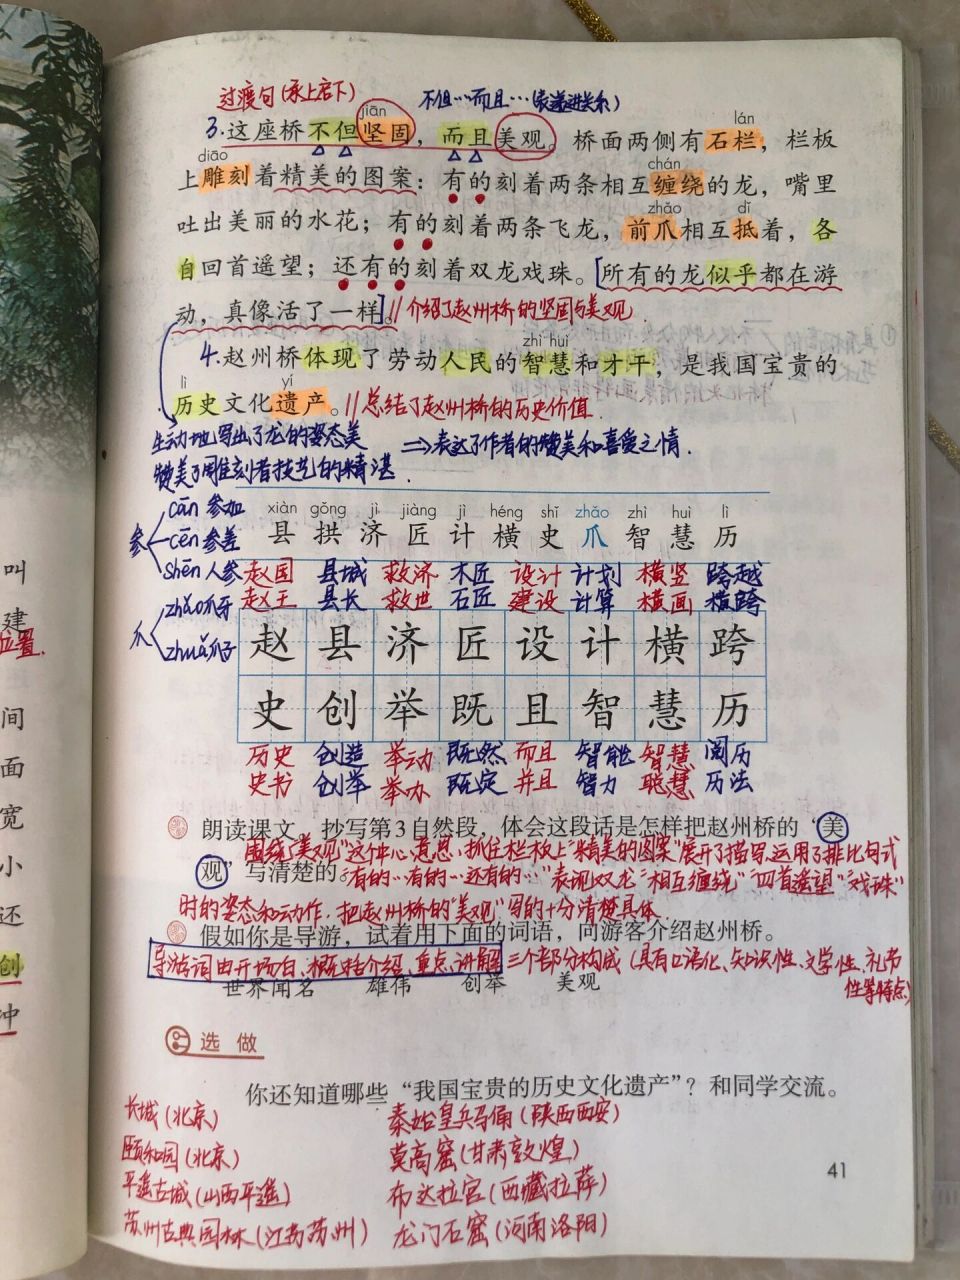 过渡句(承上启下)
不但…而且…(表递进关系)
jiān
lán
3.这座桥不但坚固，而且美观。桥面两侧有石栏，栏板
diāo
chán
上雕刻着精美的图案：有的刻着两条相互缠绕的龙，嘴里
zhǎo
dǐ
吐出美丽的水花；有的刻着两条飞龙，前爪相互抵着，各
自回首遥望；还有的刻着双龙戏珠。[所有的龙似乎都在游
动，真像活了一样]。//介绍了赵州桥的坚固与美观
zhì huì
4.赵州桥体现了劳动人民的智慧和才干，是我国宝贵的
lì
yí
历史文化遗产。//总结了赵州桥的历史价值.
生动地写出了龙的姿态美
⇒表达了作者的赞美和喜爱之情.
赞美了雕刻者技艺的精湛.
参
cān 参加
cēn 参差
shēn 人参
爪
zhǎo 爪牙
zhuǎ 爪子
xiàn gǒng jì jiàng jì héng shǐ zhǎo zhì huì lì
县 拱 济 匠 计 横 史 爪 智 慧 历
赵国 县城 救济 木匠 设计 计划 横竖 跨越
赵王 县长 救世 石匠 建设 计算 横画 横跨
赵 县 济 匠 设 计 横 跨
史 创 举 既 且 智 慧 历
历史 创造 举动 既然 而且 智能 智慧 阅历
史书 创举 举办 既定 并且 智力 聪慧 历法
朗读课文。抄写第3自然段，体会这段话是怎样把赵州桥的“美
围绕“美观”这个中心意思，抓住栏板上“精美的图案”展开了描写.运用了排比句式
观”写清楚的。
“有的…有的…还有的…”表现双龙“相互缠绕”“回首遥望”“戏珠”
时的姿态和动作.把赵州桥的“美观”写的十分清楚具体.
假如你是导游，试着用下面的词语，向游客介绍赵州桥。
导游词由开场白、概括介绍、重点讲解三个部分构成(具有口语化、知识性、文学性、礼节
性等特点)
世界闻名 雄伟 创举 美观
选做
你还知道哪些“我国宝贵的历史文化遗产”？和同学交流。
长城(北京)
秦始皇兵马俑(陕西西安)
颐和园(北京)
莫高窟(甘肃敦煌)
平遥古城(山西平遥)
布达拉宫(西藏拉萨)
苏州古典园林(江苏苏州)
龙门石窟(河南洛阳)
41
叫
建
位置.
间
面
宽
小
还
创
冲